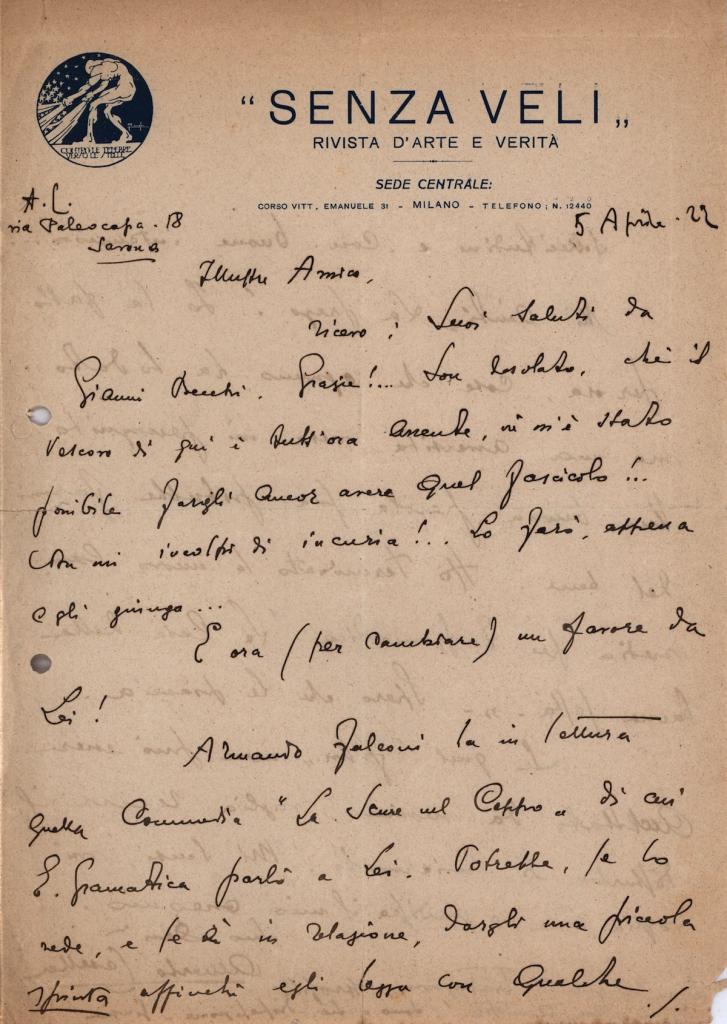 CONTRO LE TENEBRE
VERSO LE STELLE
“SENZA VELI„
RIVISTA D'ARTE E VERITÀ
SEDE CENTRALE:
CORSO VITT. EMANUELE 31 - MILANO - TELEFONO: N. 12440
A. L.
via Paleocapa - 18
Savona
5 Aprile - 22
Illustre Amico,
ricevo i Suoi saluti da
Gianni . Grazie!... Son desolato, chè il
Vescovo di qui è tutt'ora assente, nè m'è stato
possibile fargli ancor avere quel fascicolo!...
mi incolpi di incuria!... Lo farò, appena
egli giunga...
E ora (per cambiare) un favore da
Lei!
Armando Falconi ha in lettura
quella Commedia "La Scure nel Ceppo„ di cui
E. Gramatica parlò a Lei. Potrebbe, se lo
vede, e se è in relazione, dargli una piccola
spinta affinchè egli legga con qualche ./.